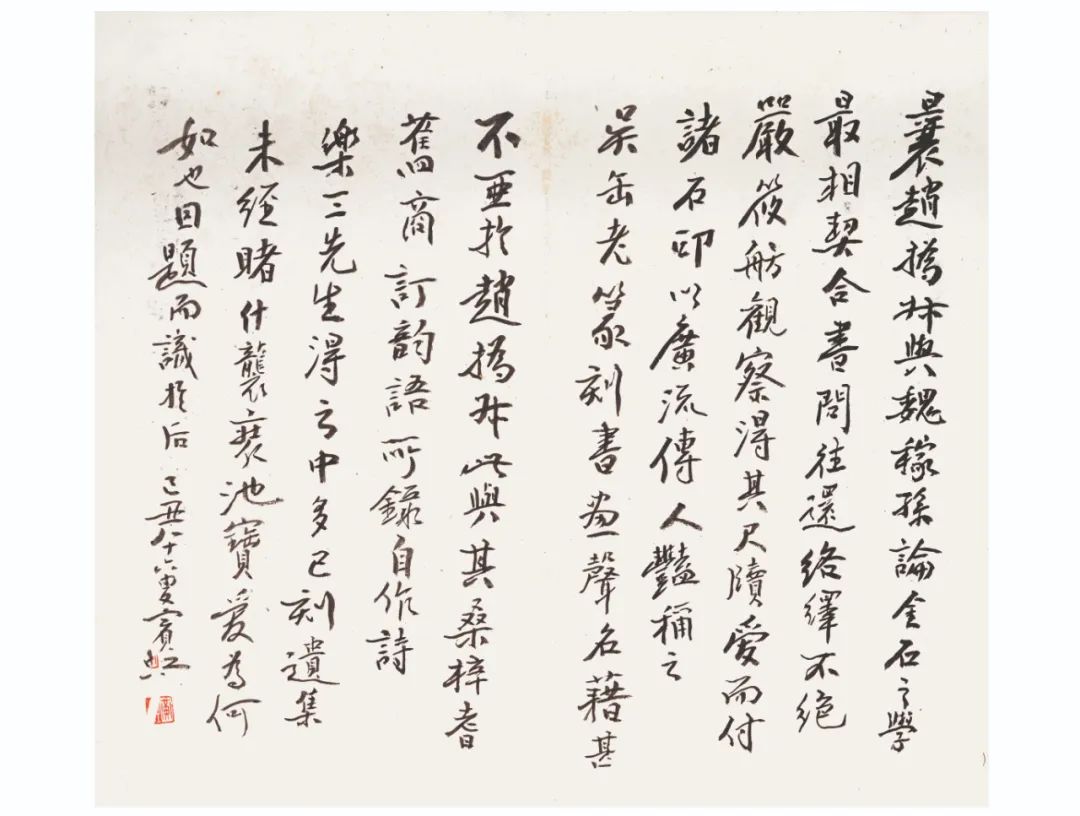 曩趙撝叔與魏稼孫論金石之學
最相契合書問往還絡繹不絕
嚴筱舫觀察得其尺牘愛而付
諸石印以廣流傳人豔稱之
吳缶老篆刻書畫聲名藉甚
不亞於趙撝叔此與其桑梓耆
舊四商訂韵語所錄自作詩
樂三先生得之中多已刻遺集
未經賭什襲裘池寶愛為何
如也因題而識於后 己丑八十六叟賓虹